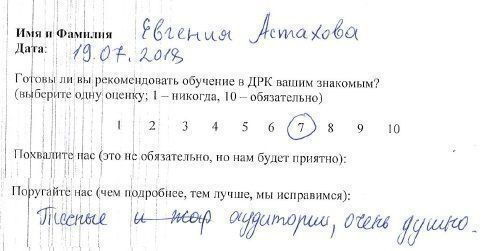 Имя и Фамилия Евгения Астахова
Дата: 19.07.2018
Готовы ли вы рекомендовать обучение в ДРК вашим знакомым?
(выберите одну оценку; 1 – никогда, 10 – обязательно)
1 2 3 4 5 6 7 8 9 10
Похвалите нас (это не обязательно, но нам будет приятно):
Поругайте нас (чем подробнее, тем лучше, мы исправимся):
Тесные аудитории, очень душно.